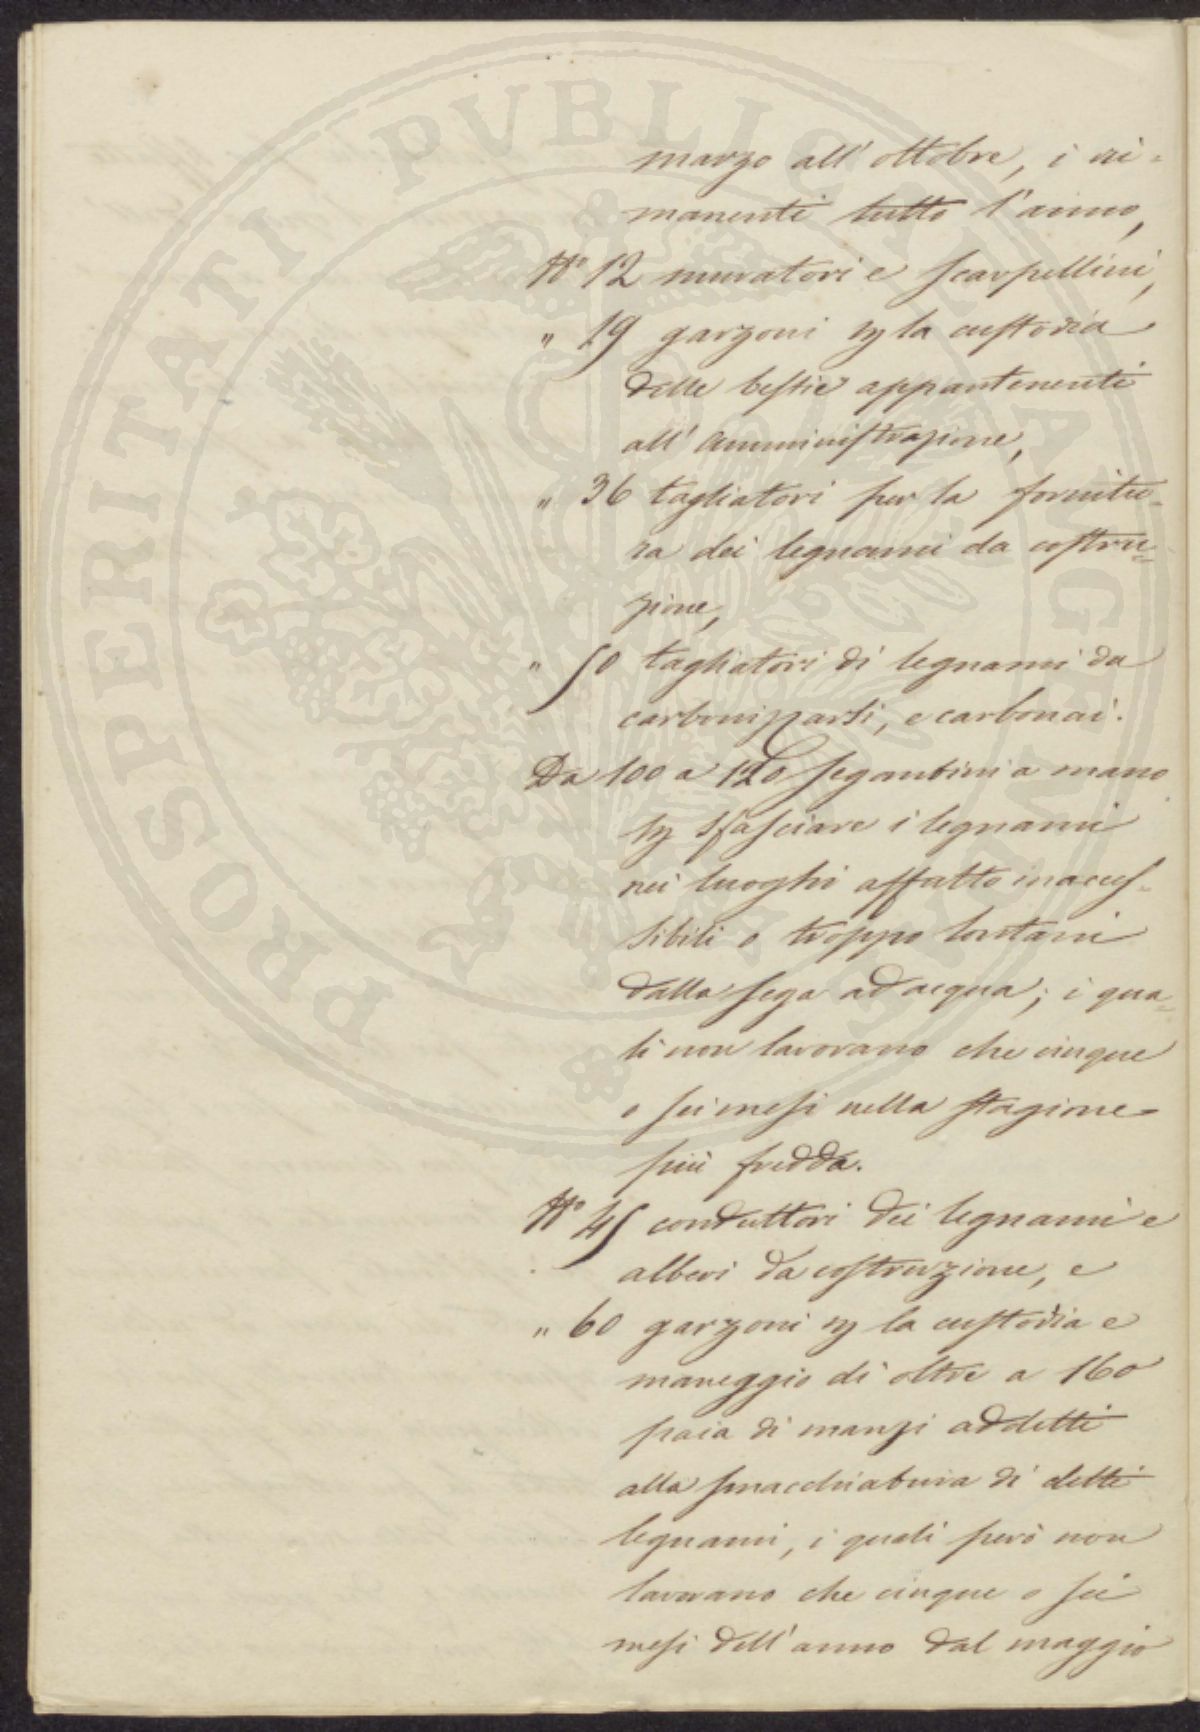 marzo all' ottobre, i ri=
manenti tutto l'anno,
N° 12 muratori e scarpellini,
" 19 garzoni p la custodia
delle bestie appartenenti
all' Amministrazione,
" 36 tagliatori per la fornitu=
ra dei legnami da costru=
zione,
" 50 tagliatori di legnami da
carbonizzarsi, e carbonai.
Da 100 a 120 segantini a mano
p sfasciare i legnami
nei luoghi affatto inacces=
sibili o troppo lontani
dalla sega ad acqua; i qua=
li non lavorano che cinque
o sei mesi nella stagione
più fredda.
N° 45 conduttori dei legnami e
alberi da costruzione, e
" 60 garzoni p la custodia e
maneggio di oltre a 160
paia di manzi addetti
alla smacchiatura di detti
legnami, i quali però non
lavorano che cinque o sei
mesi dell'anno dal maggio
PROSPERITATI PUBLICAE AUGENDAE